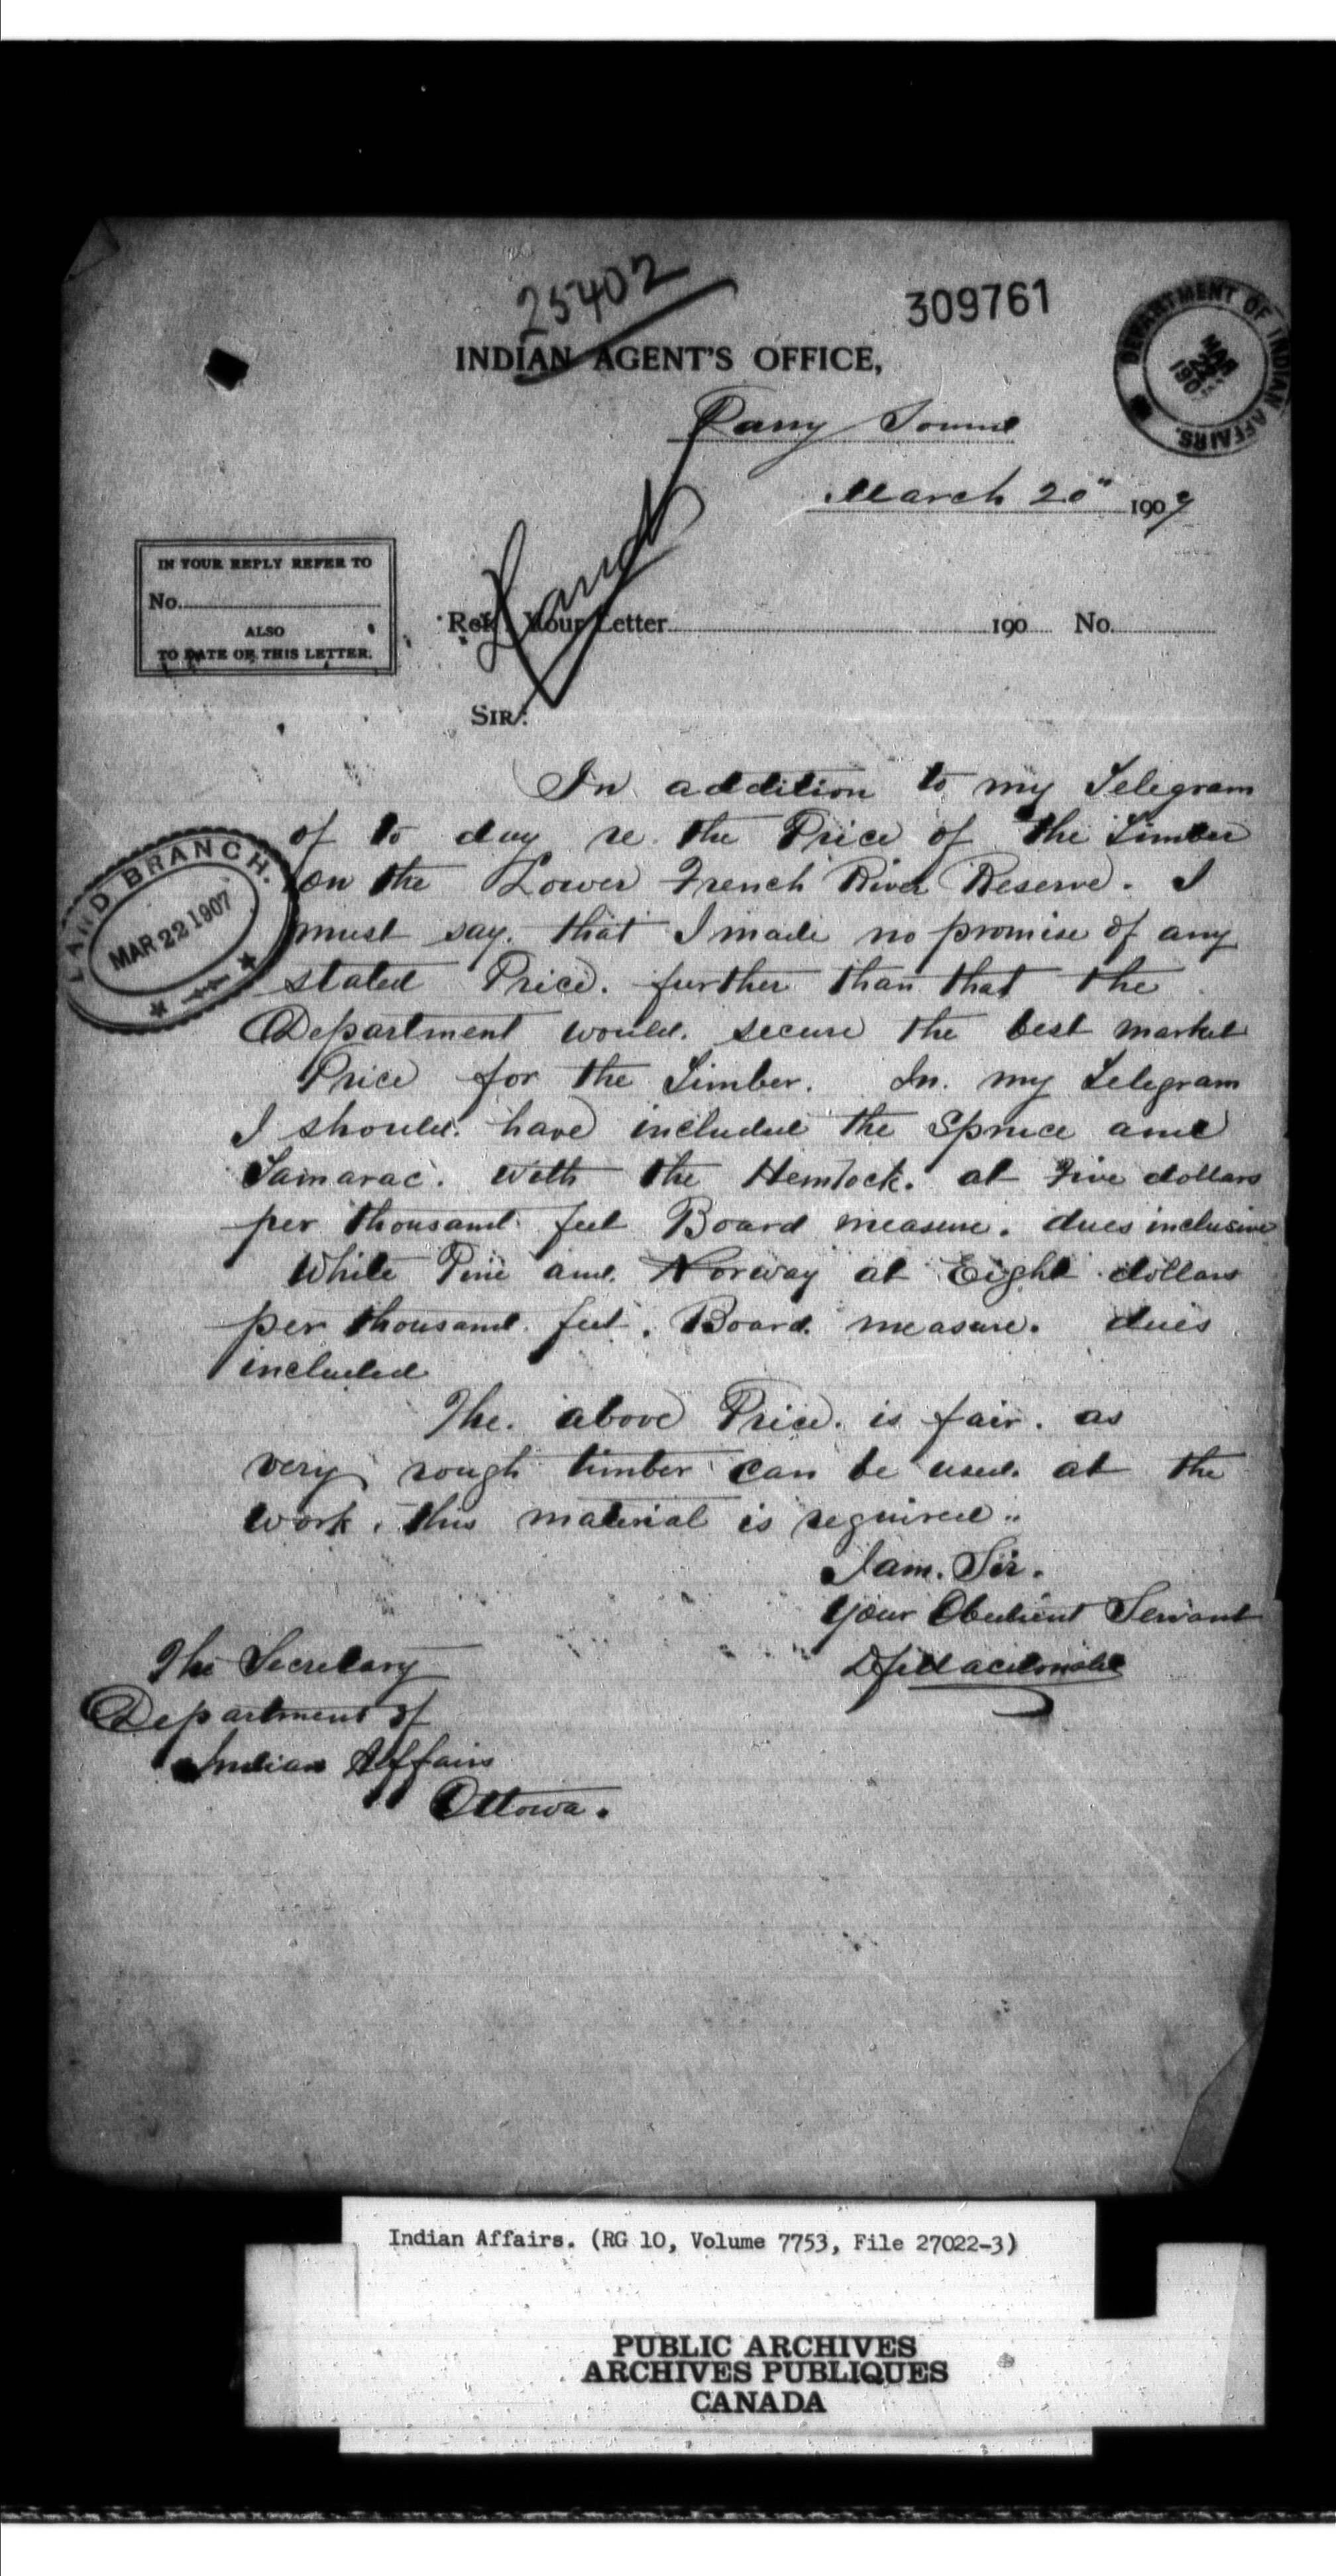 25402
309761
INDIAN AGENT'S OFFICE,
DEPARTMENT OF INDIAN AFFAIRS.
MAR 22 190
Parry Sound
March 20" 1907
IN YOUR REPLY REFER TO
No.
ALSO
TO DATE OF THIS LETTER.
Land
Ref. Your Letter 190 No.
SIR:
In addition to my Telegram
of to day re. the Price of the Timber
on the Lower French River Reserve. I
LAND BRANCH.
MAR 22 1907
must say. that I made no promise of any
stated Price. further than that the
Department would. secure the best market
Price for the Timber. In. my Telegram
I should. have included the Spruce and
Tamarac. with the Hemlock. at Five dollars
per thousand feet Board measure. dues inclusive
White Pine and. Norway at Eight dollars
per thousand. feet. Board. measure. dues
included
The. above Price. is fair. as
very rough timber can be used. at the
work, this material is required..
I am. Sir.
Your Obedient Servant
D F Macdonald
The Secretary
Department of
Indian Affairs
Ottowa.
Indian Affairs. (RG 10, Volume 7753, File 27022-3)
PUBLIC ARCHIVES
ARCHIVES PUBLIQUES
CANADA